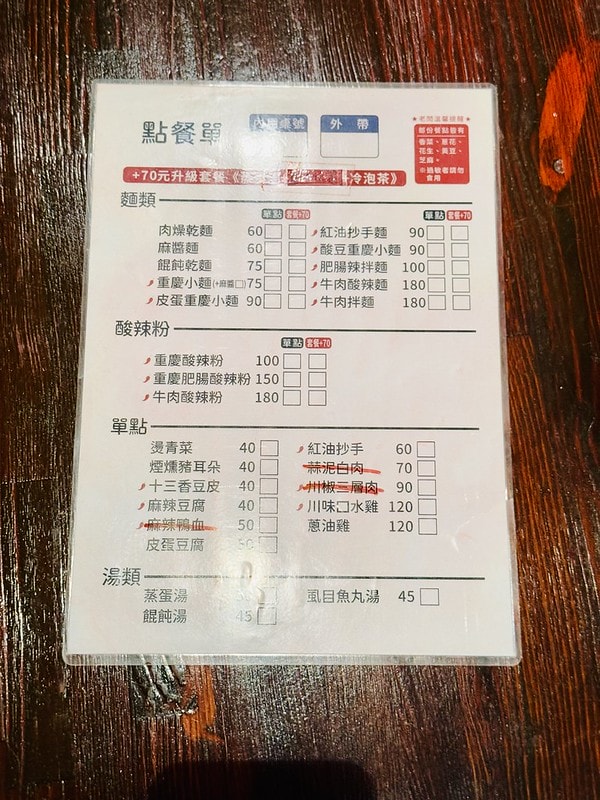 點餐單 內用桌號 外 帶
★老闆溫馨提醒★
部份餐點皆有
香菜、蔥花、
花生、黃豆、
芝麻。
※過敏者請勿
食用
+70元升級套餐《 冷泡茶》
麵類
單點 套餐+70 單點 套餐+70
肉燥乾麵 60 紅油抄手麵 90
麻醬麵 60 酸豆重慶小麵 90
餛飩乾麵 75 肥腸辣拌麵 100
重慶小麵(+麻醬□) 75 牛肉酸辣麵 180
皮蛋重慶小麵 90 牛肉拌麵 180
酸辣粉
單點 套餐+70
重慶酸辣粉 100
重慶肥腸酸辣粉 150
牛肉酸辣粉 180
單點
燙青菜 40 紅油抄手 60
煙燻豬耳朵 40 蒜泥白肉 70
十三香豆皮 40 川椒三層肉 90
麻辣豆腐 40 川味口水雞 120
麻辣鴨血 50 蔥油雞 120
皮蛋豆腐 50
湯類
蒸蛋湯 虱目魚丸湯 45
餛飩湯 45